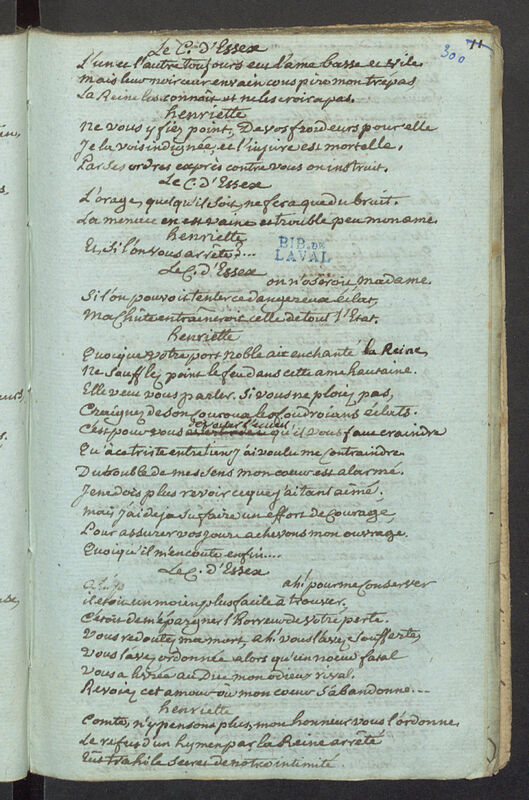 300 11
Le C. d'Essex
L'un et l'autre toujours eut l'ame basse et vile
Mais leur noirceur envain conspire mon trepas
La Reine les connait et ne les croira pas.
henriette
Ne vous y fiez point, De vos froideurs pour elle
Je la vois indignée, et l'injure est mortelle.
Par ses ordres exprès contre vous on instruit.
Le C. d'Essex
L'orage, quel qu'il soit, ne fera que du bruit.
La menace en est vaine et trouble peu mon ame
henriette
Et, si l'on vous arrête ?...
BIB. DE
LAVAL
Le C. d'Essex
on n'oseroit, Madame.
Si l'on pouvoit tenter ce dangereux éclat,
Ma chûte entraîneroit celle de tout l'Etat.
henriette
Quoique votre port noble ait enchanté la Reine,
Ne soufflez point le feu dans cette ame hautaine.
Elle veut vous parler. Si vous ne ploiez pas,
Craignez de son couroux les foudroians éclats.
C'est pour vous qu'il vous faut craindre
Qu'à ce triste entretien j'ai voulu me contraindre
Du trouble de mes sens mon cœur est alarmé.
Je ne dois plus revoir ce que j'ai tant aimé.
Mais j'ai deja su faire un effort de courage,
Pour assurer vos jours achevons mon ouvrage.
Quoiqu'il m'en coute enfin....
Le C. d'Essex
ah! pour me conserver
il étoit un moien plus facile à trouver.
C'étoit de m'épargner l'horreur de votre perte.
Vous redoutez ma mort, ah! vous l'avez soufferte,
Vous l'avez ordonnée alors qu'un nœud fatal
Vous a livrée au Duc mon odieux rival.
Revoiez cet amour où mon cœur s'abandonne...
henriette
Comte, n'y pensons plus, mon honneur vous l'ordonne.
Le refus d'un hymen par la Reine arrêté
Eut trahi le secret de notre intimité.